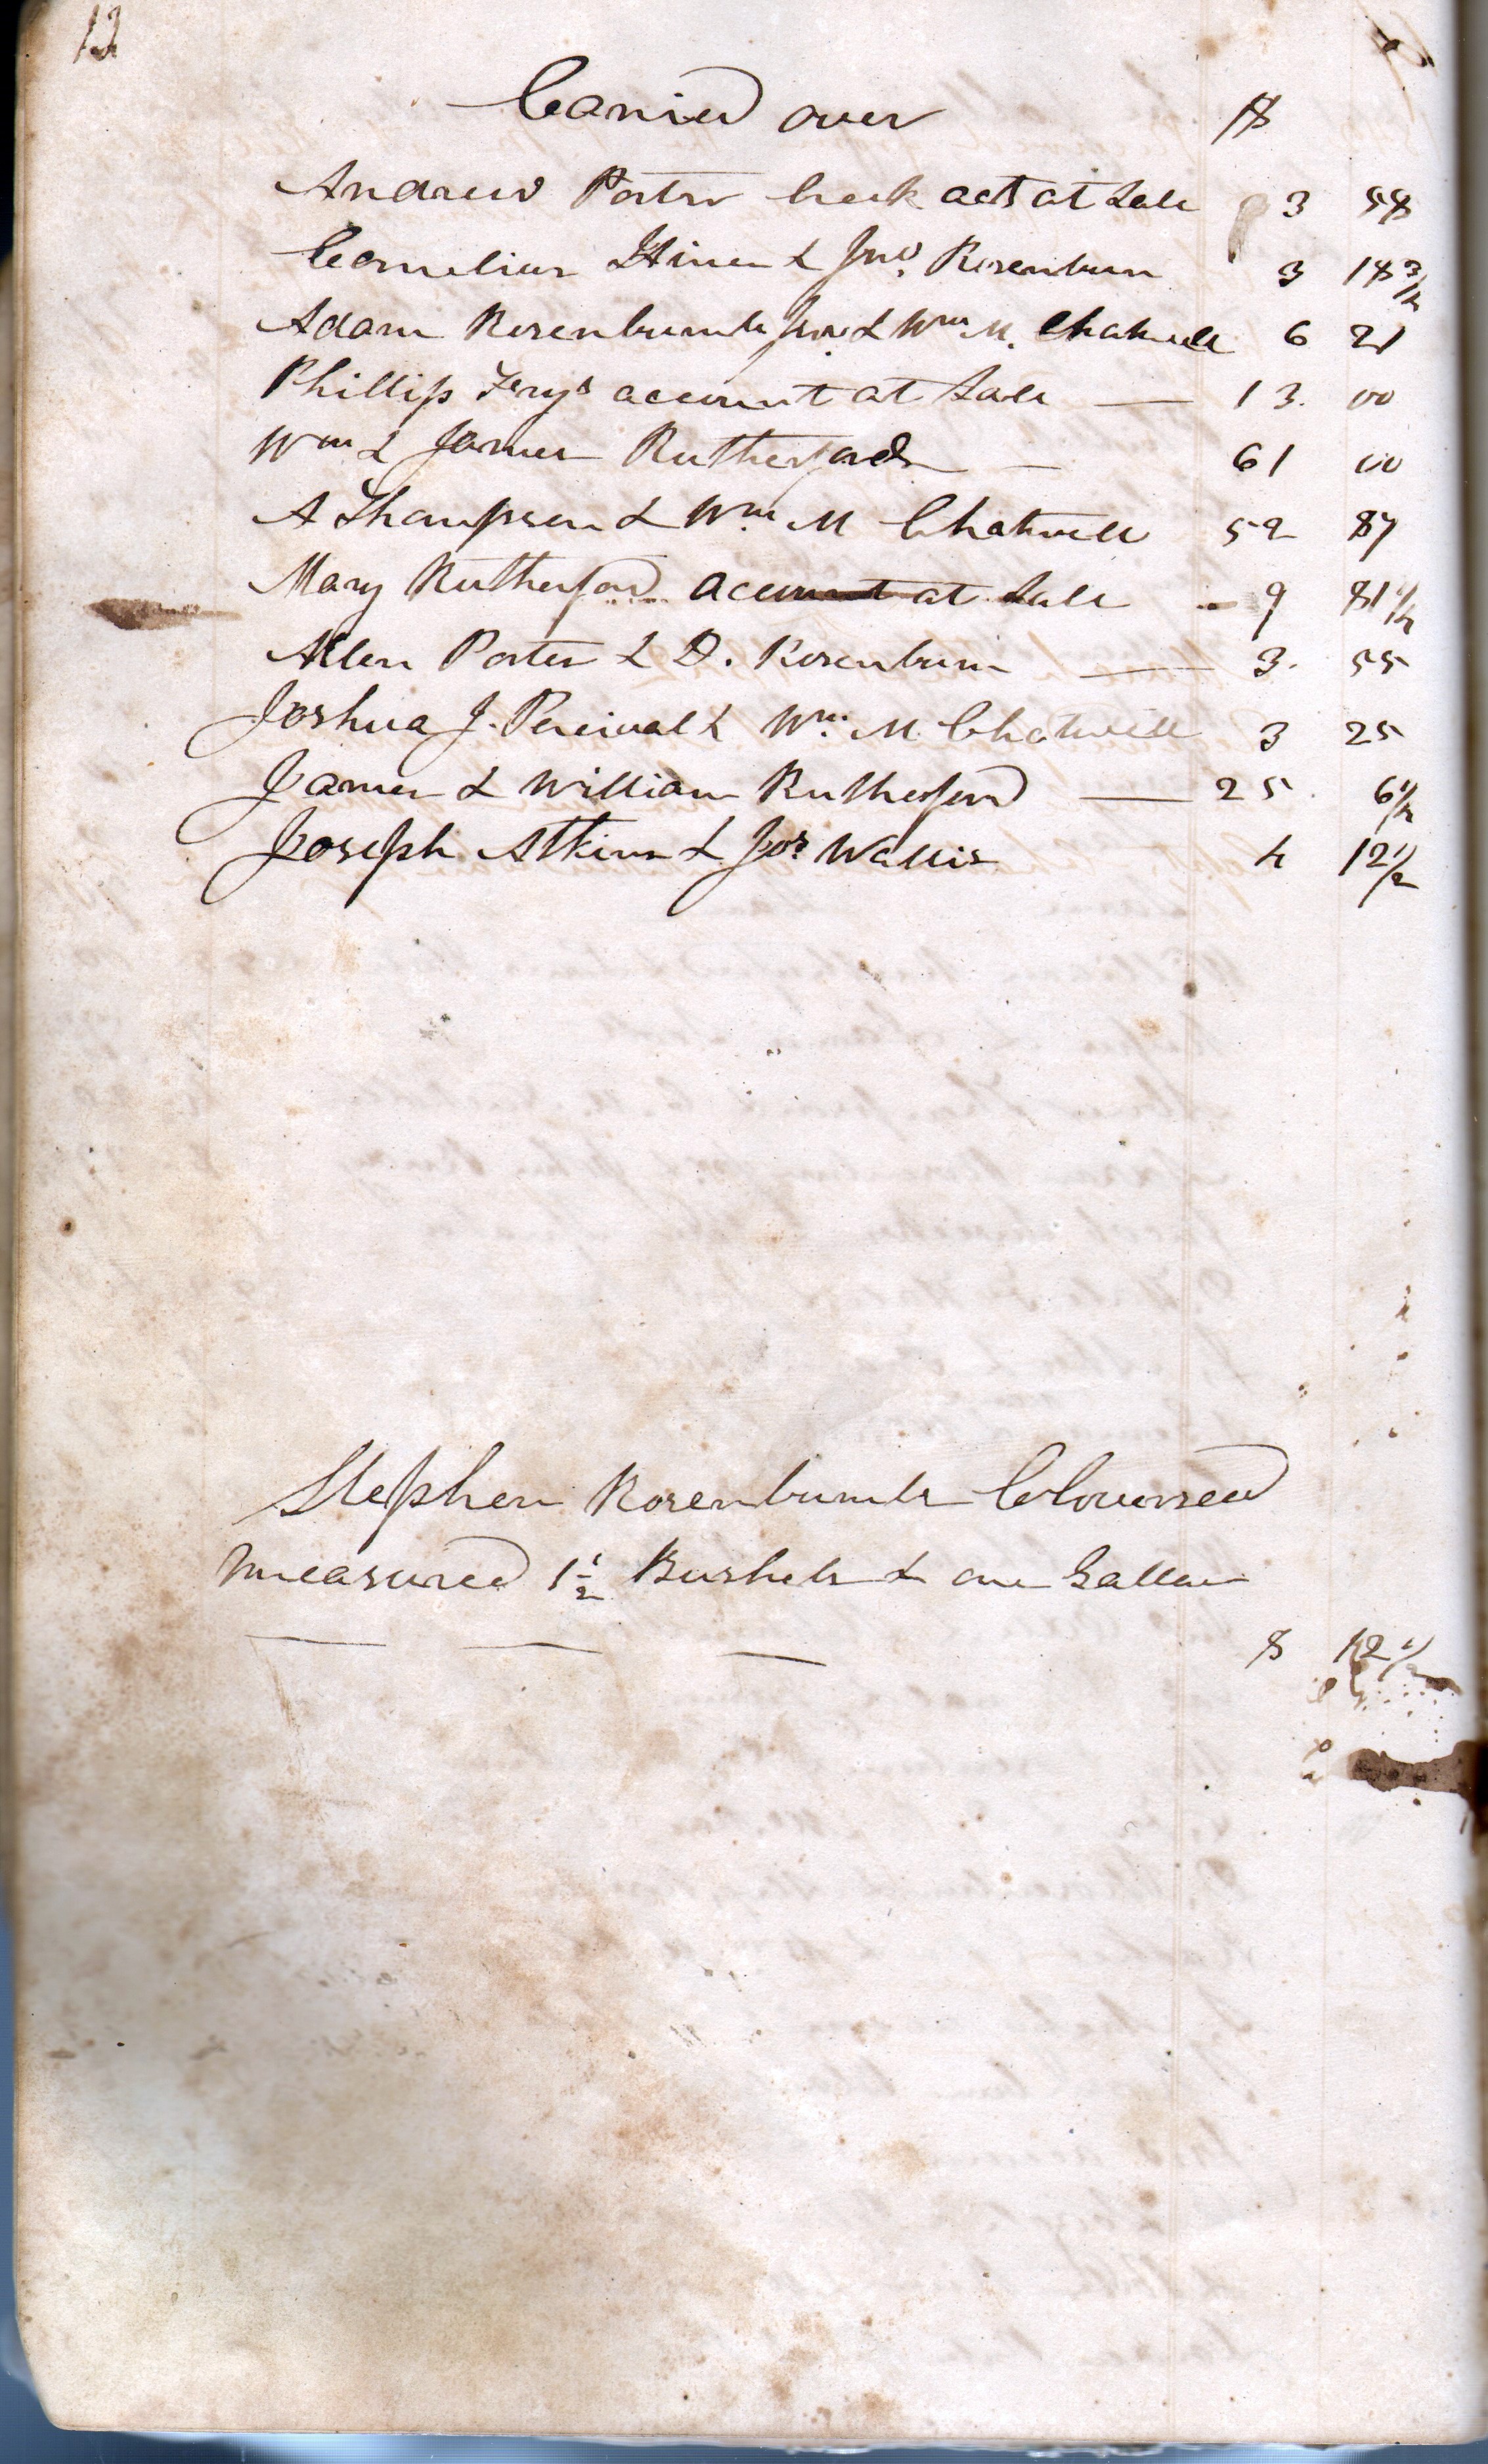 12
Carried over $
Andrew Porter Creek acts at Sale 3 58
Cornelius Hines & Jno. Rosenbum 3 18 3/4
Adam Rosenbumbs Jnr. & Wm M. Chatwell 6 21
Phillip Frys account at Sale — 13. 00
Wm & James Rutherfords — 61 00
A Thompson & Wm M Chatwell 52 87
Mary Rutherford account at Sale - 9 81 1/4
Allen Porter & D. Rosenbum — 3. 55
Joshua J. Percival & Wm. M Chatwell 3 25
James & William Rutherford — 25. 6 1/4
Joseph Atkins & Jos Wallis 4 12 1/2
Stephen Rosenbumbs Cloverseed
measured 1 1/2 Bushels & one Gallon
— — — 8 12 1/2